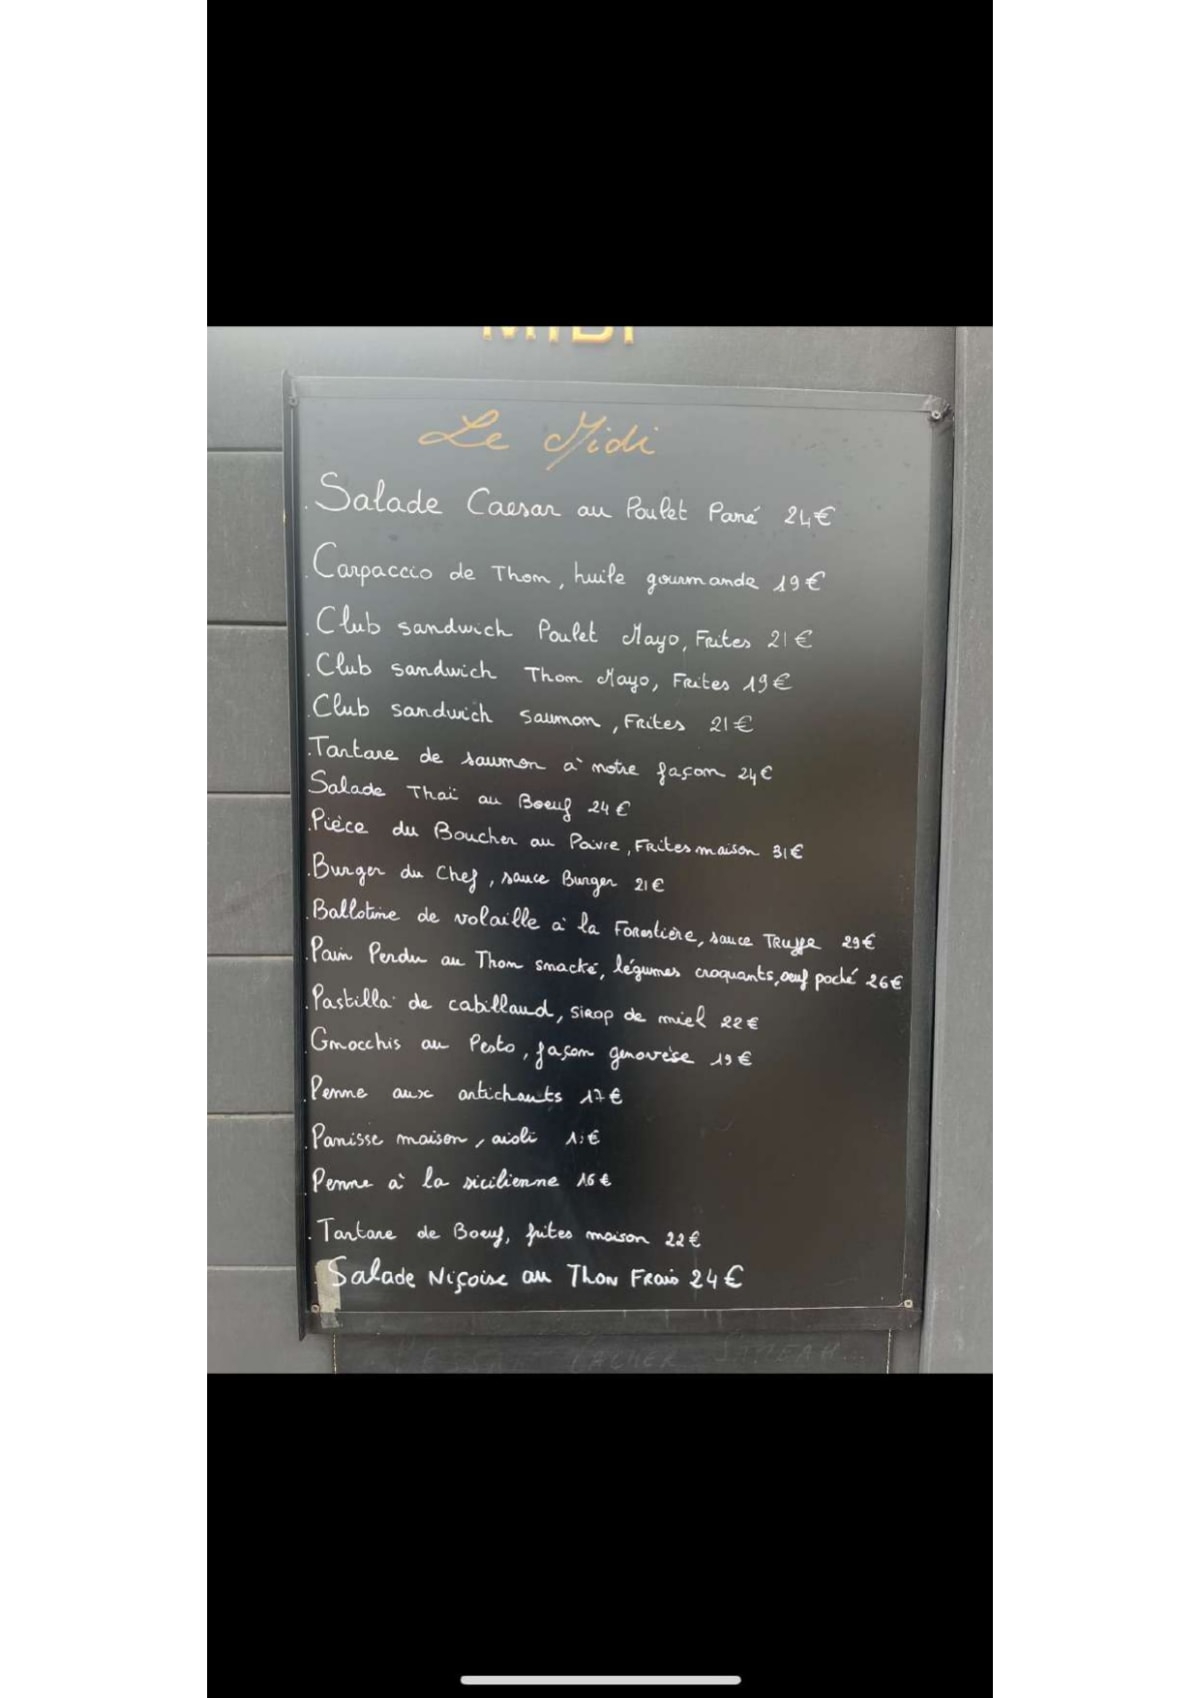 MIDI
Le Midi
. Salade Caesar au Poulet Pané 24€
. Carpaccio de Thon, huile gourmande 19€
. Club sandwich Poulet Mayo, Frites 21€
. Club sandwich Thon Mayo, Frites 19€
. Club sandwich saumon, Frites 21€
. Tartare de saumon à notre façon 24€
Salade Thaï au Boeuf 24€
. Pièce du Boucher au Poivre, Frites maison 31€
. Burger du Chef, sauce Burger 21€
. Ballotine de volaille à la Forestière, sauce Truffe 29€
. Pain Perdu au Thon smacké, légumes croquants, oeuf poché 26€
. Pastilla de cabillaud, sirop de miel 22€
. Gnocchis au Pesto, façon genovèse 19€
. Penne aux artichauts 17€
. Panisse maison, aioli
. Penne à la sicilienne 16€
. Tartare de Boeuf, frites maison 22€
. Salade Niçoise au Thon Frais 24€